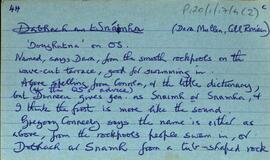 4H
P.20/1/17/4(2)c
Dabhach an tSnámha (Dara Mullen, Cill Rónáin)
'Donaghatna' on OS.
Named, says Dara, from the smooth rockpools on the
wave-cut terrace, good for swimming in.
Above spelling from Conneely, & the little dictionary,
(& the OS's advice)
but Dinneen gives gen. as Snáimh or Snámha, &
I think the first is more like the sound.
Gregory Conneely says the name is either as
above, from the rockpools people swam in, or
Dabhach a' Snámh from a tub-shaped rock